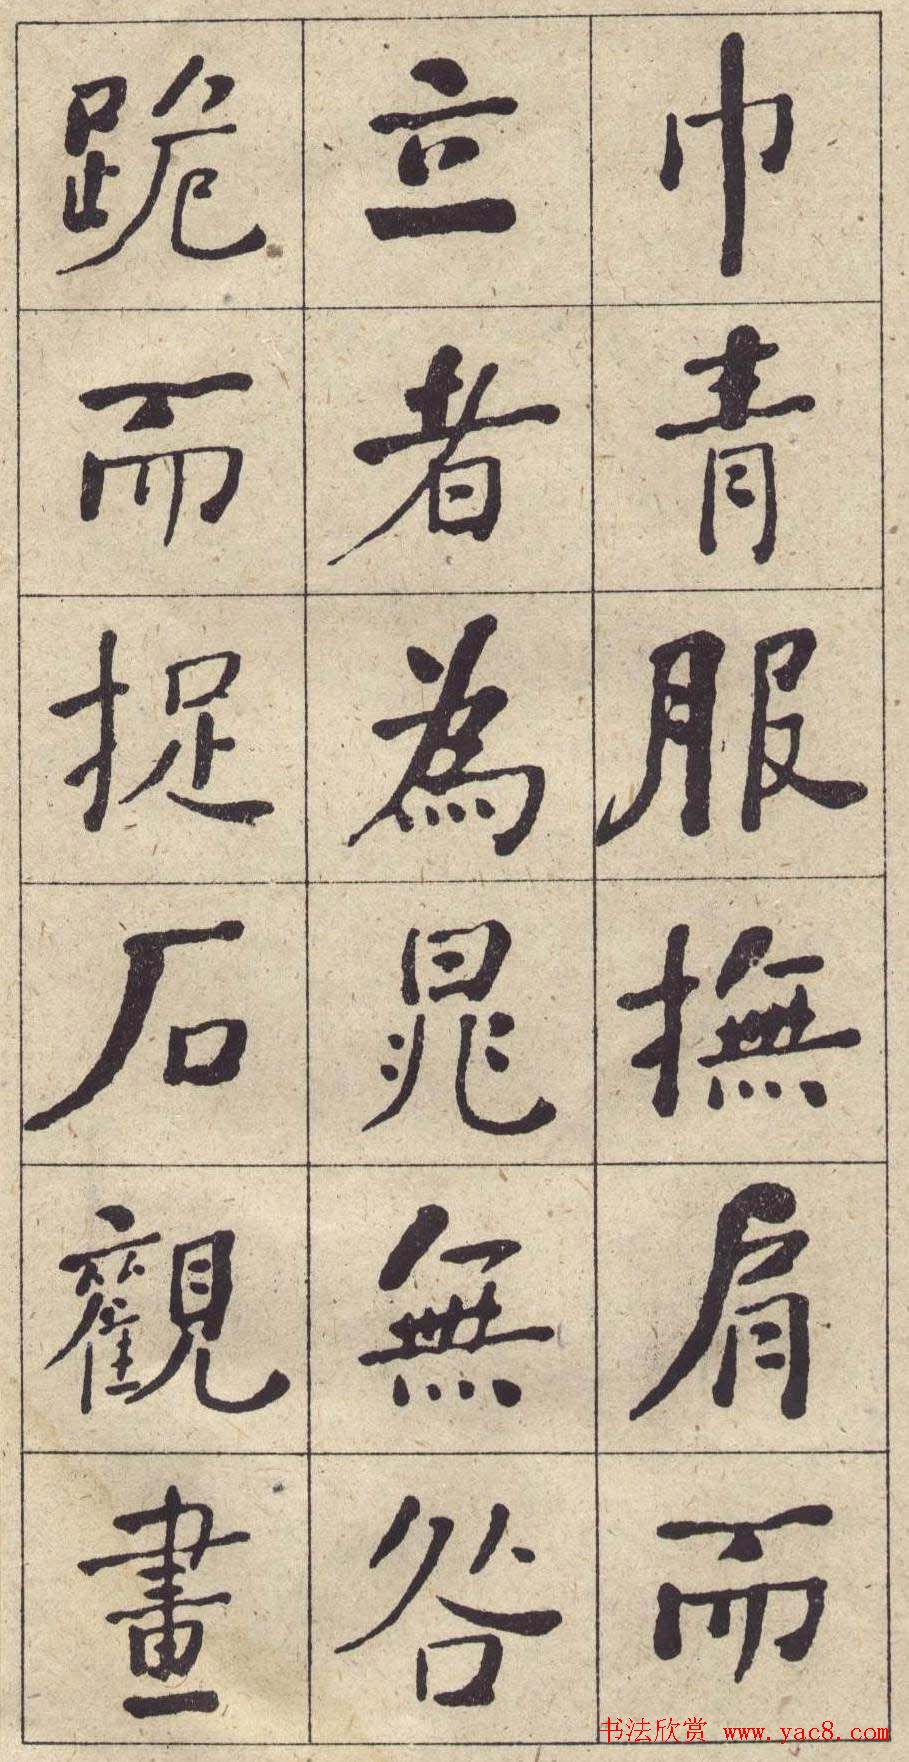 巾青服撫肩而
立者為晁無咎
跪而捉石觀畫
书法欣赏 www.yac8.com